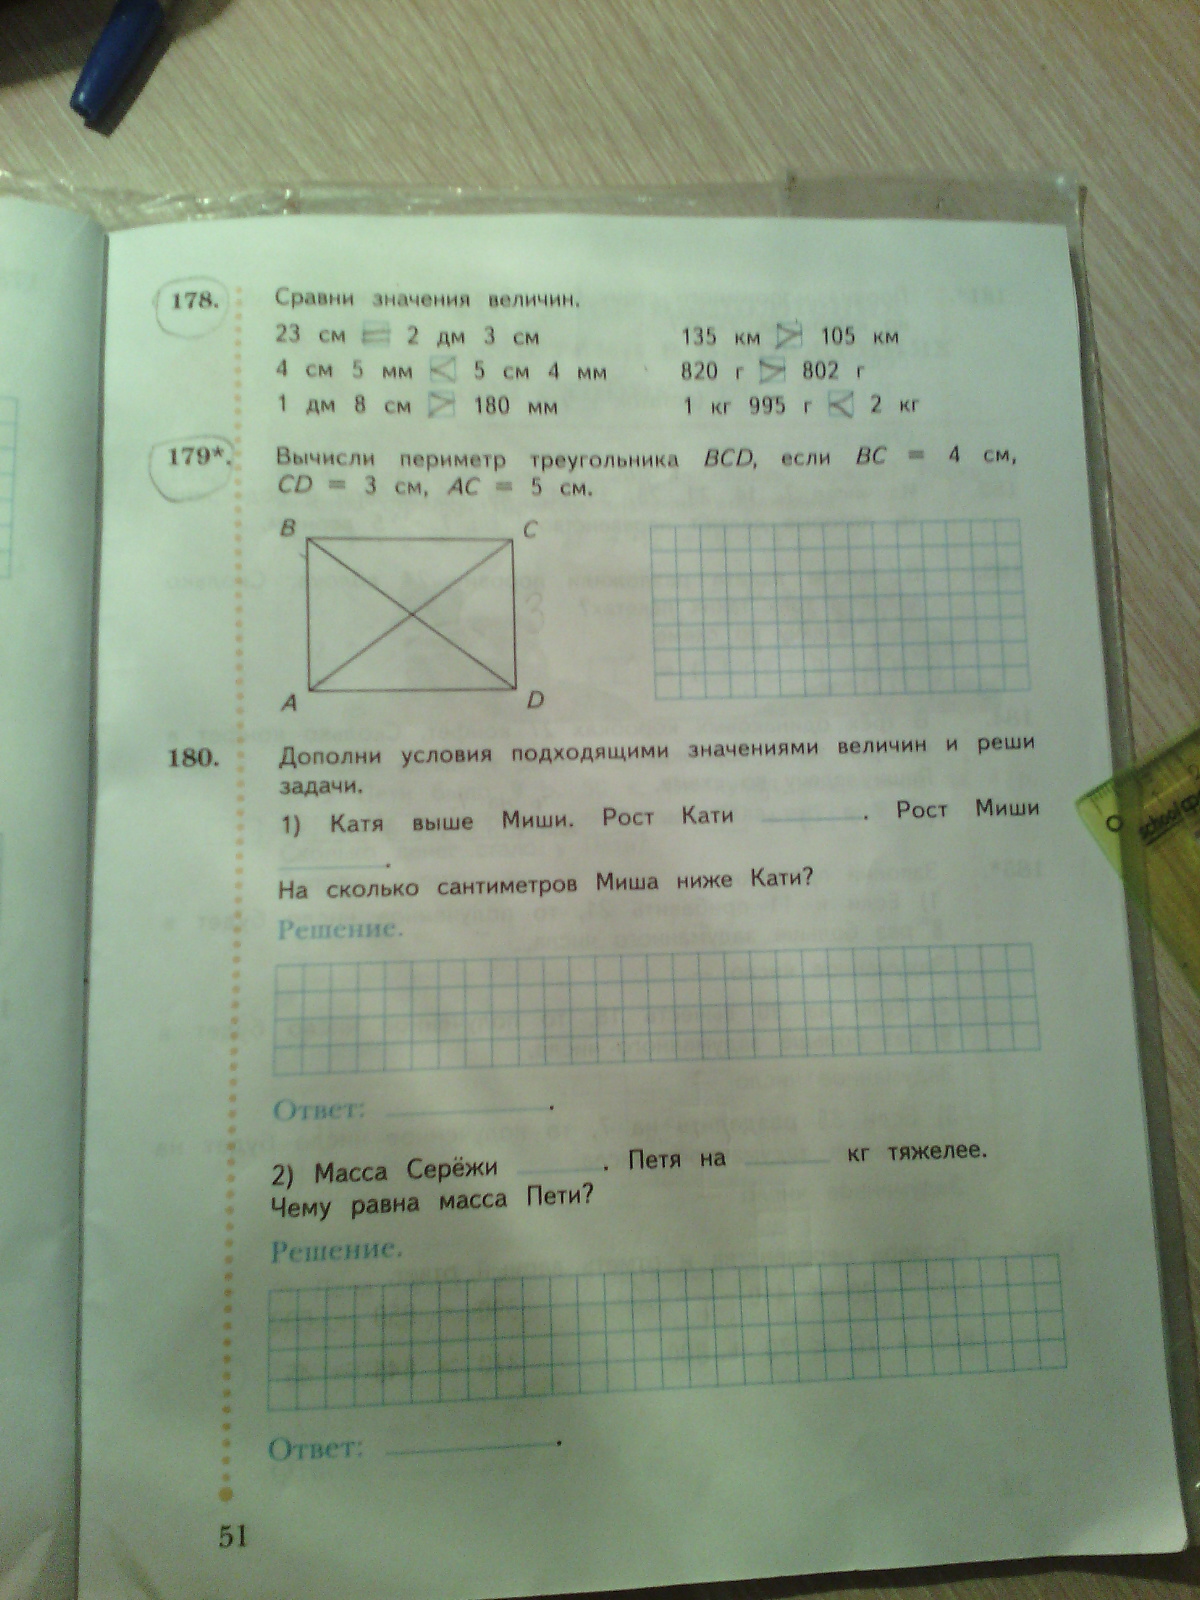 178.
Сравни значения величин.
23 см = 2 дм 3 см
135 км > 105 км
4 см 5 мм < 5 см 4 мм
820 г > 802 г
1 дм 8 см > 180 мм
1 кг 995 г < 2 кг
179*.
Вычисли периметр треугольника BCD, если BC = 4 см,
CD = 3 см, AC = 5 см.
B
C
3
A
D
180.
Дополни условия подходящими значениями величин и реши
задачи.
1) Катя выше Миши. Рост Кати ______. Рост Миши
______.
На сколько сантиметров Миша ниже Кати?
Решение.
Ответ: ______.
2) Масса Серёжи ______. Петя на ______ кг тяжелее.
Чему равна масса Пети?
Решение.
Ответ: ______.
51
0
school